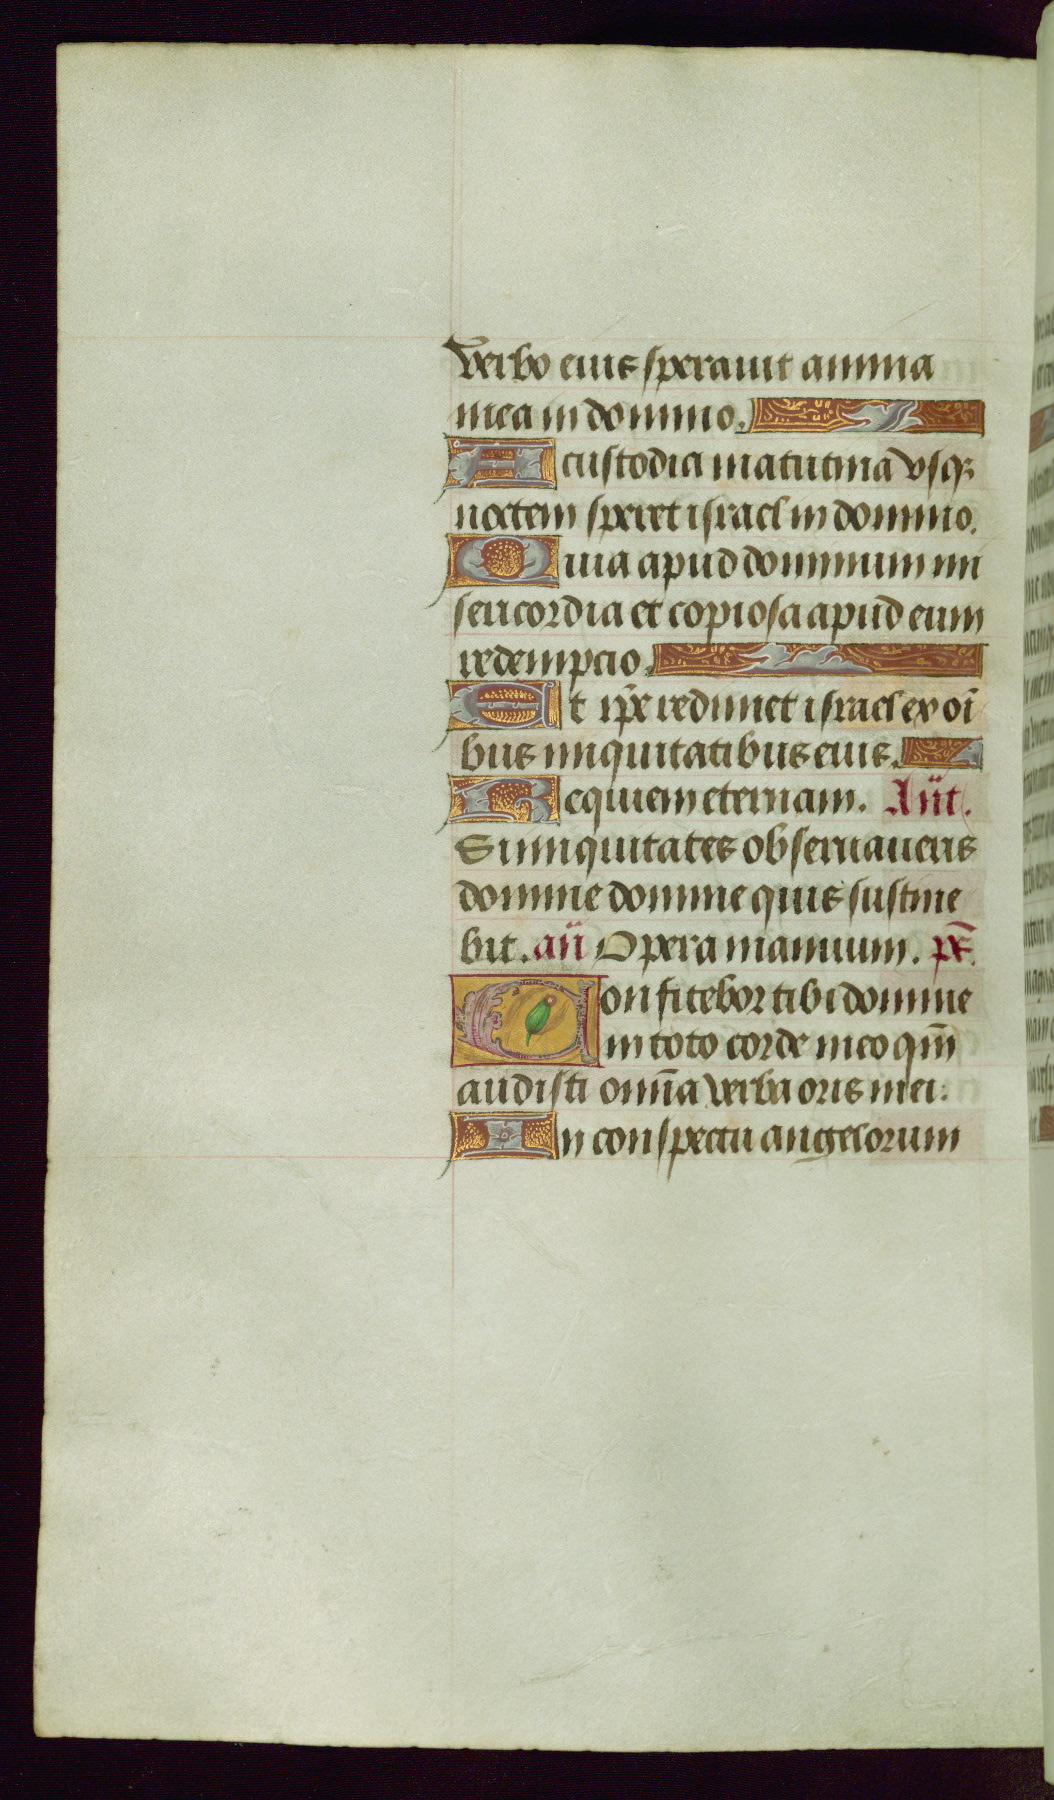 Verbo eius sperauit anima
mea in domino.
A custodia matutina vsq3
noctem speret israel in domino.
Quia apud dominum mi
sericordia et copiosa apud eum
redempcio.
Et ip̄e redimet israel ex oī
bus iniquitatibus eius.
Requiem eternam. Añt.
Si iniquitates obseruaueris
domine domine quis sustine
bit. añ Opera manuum. ps̄.
Confitebor tibi domine
in toto corde meo qm̄
audisti om̄a verba oris mei.
In conspectu angelorum